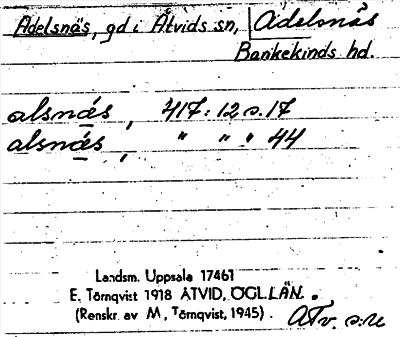 Adelsnäs, gd i Åtvids sn, Adelsnäs
Bankekinds hd.
alsnás, 417:12 s.17
alsnás, " " " 44
Landsm. Uppsala 17461
E. Törnqvist 1918 ÅTVID, ÖGL.LÄN.
(Renskr. av M. Törnqvist, 1945).